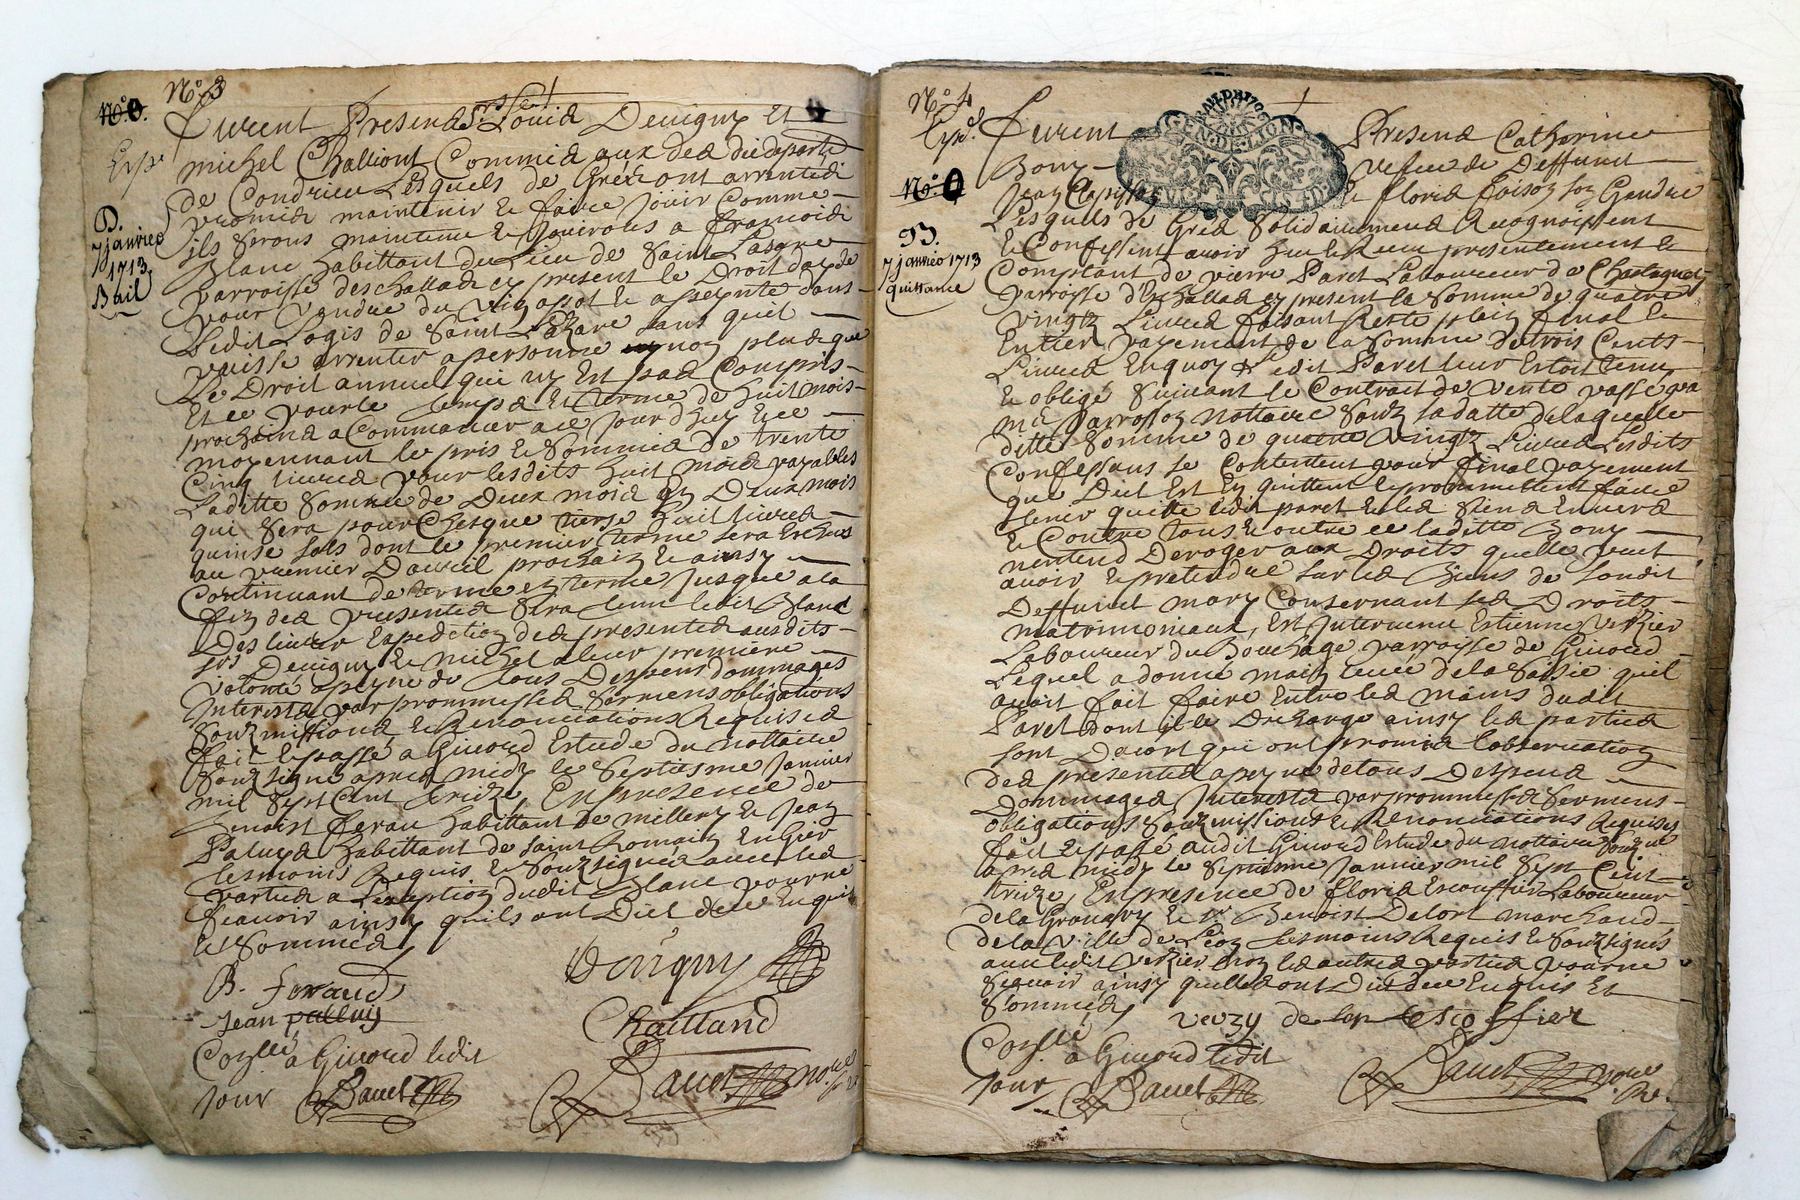 N.° 3
N.° 0.
Exp.
B.
7 janvier
1713
Bail
Furent Presens Srs Louis Devigny Et
michel Challiont Commis aux
de Condrieu Lesquels de Gré ont arrentés
promis maintenir & faire Jouir Comme
ils Serons maintenu & Jouirons a francois
Blanc habittant du Lieu de Saint Lasare
parroisse deschallas cy present le Droit
pour Vendue du Vin a pot & a asseynte dans
Ledit Logis de Saint Lazare Sans quil
puisse arrenter a personne non plus que
Le Droit annuel qui ny Est pas Compris
Et ce pour le temps Et terme de huit mois
prochains a Commancer a ce Jour dhuy Et ce
moyennant le pris & Somme de trente
Cinq livres pour lesdits huit mois payables
Laditte Somme de Deux mois En Deux mois
qui Sera pour Chesque tierse huit livres
quinse sols dont le premier terme sera Escheus
au premier Davril prochain & ainsy
Continuant de terme en terme Jusque a la
fin des presentes Sera tenu ledit Blanc
Des livrer Expedition des presentes ausdits
Srs Devigny & michel a leur premiere
volonté a peyne de tous Despens dommages
Interests par promisses Sermens obligations
Soubzmissions & Renonciations Requises
fait & passé a Givord Estude du nottaire
Soubzsigné apres midy le Septiesme Janvier
mil Sept Cent treize, En presence de
Benoist feraud habittant de millery & Jean
Paluys habittant de saint Romain En Gier
tesmoins Requis & Soubzsignés avec les
parties a Lexeption dudit Blanc pour ne
scavoir ainsy quils ont Dict de ce Enquis
& Sommés
Devigny
B. Feraud
Jean palluis
Chailland
Conllé a Givord ledit
Jour Bauet
Bauet noue
N.° 4
Exp.
N.° 0
B.
7 janvier 1713
quittance
Furent Presens Catherine
Bony vefue de Deffunt
Jean & Floris foison son Gendre
Lesquels de Gré Solidairement Recognoissent
& Confessent avoir heu & Receu presentement &
Comptant de pierre Paret Laboureur de Chastagnet
parroisse d'Eschallas cy present la Somme de quatre
Vingtz Livres faisant Reste plein final &
Entier payement de la Somme de trois Cents
Livres En quoy ledit Paret leur Estoit tenu
& obligé Suivant le Contrait de Vente passé pa
me Parrosson nottaire Soubz sa datte de laquelle
ditte Somme de quatre Vingtz Livres Lesdits
Confessans se Contentent pour final payement
que Dict Est En quittent & promettent faire
tenir quitte ledit paret & les Siens Envers
& Contre tous & outre ce laditte Bony
nentend Deroger aux Droits quelle peut
avoir & pretendre sur les Biens de Sondit
Deffunct mary Consernant ses Droits
matrimoniaux, Est Intervenu Estienne Verzier
Laboureur du Bouchage parroisse de Givord
Lequel a donné main levee de la Saisie quil
avoit fait faire Entre les mains dudit
Paret dont il le Descharge ainsy les parties
sont Dacort qui ont promis lobservation
des presentes a peyne de tous Despens
Dommages Interests par promisses Sermens
obligations Soubzmissions & Renonciations Requises
fait & passé audit Givord Estude du nottaire Soubzsigné
apres midy le Septiesme Janvier mil Sept Cent
treize, En presence de Floris Escouffier Laboureur
de la & Sr Benoist Delort marchand
de la Ville de Lion tesmoins Requis & Soubzsignés
avec ledit Verzier non les autres parties pour ne
scavoir ainsy quelles ont Dict de ce Enquis Et
Sommés
Conllé a Givord ledit
Jour Bauet
Bauet noue
Re.